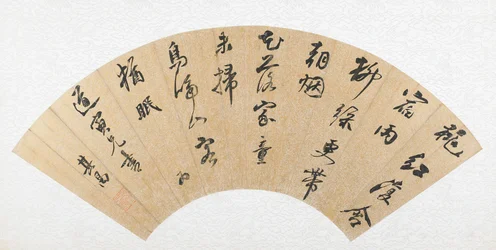 桃紅復含
宿雨
柳綠更帶
朝烟
花落家童
未掃
鳥啼山客
猶眠
其昌